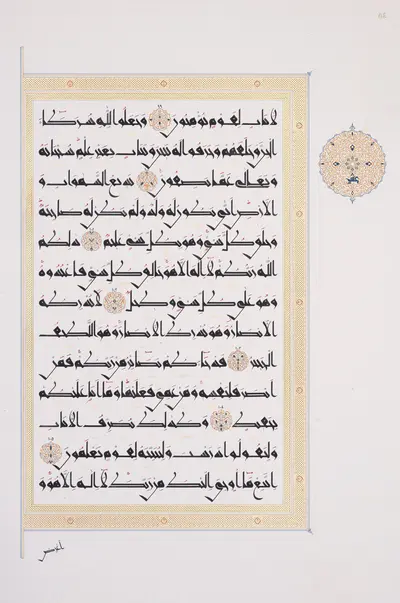 لآيات لقوم يؤمنون وجعلوا لله شركاء
الجن وخلقهم وخرقوا له بنين وبنات بغير علم سبحانه
وتعالى عما يصفون بديع السموات و
الأرض أنى يكون له ولد ولم تكن له صاحبة
وخلق كل شيء وهو بكل شيء عليم ذلكم
الله ربكم لا إله إلا هو خالق كل شيء فاعبدوه
وهو على كل شيء وكيل لا تدركه
الأبصار وهو يدرك الأبصار وهو اللطيف
الخبير قد جاءكم بصائر من ربكم فمن
أبصر فلنفسه ومن عمي فعليها وما أنا عليكم
بحفيظ وكذلك نصرف الآيات
وليقولوا درست ولنبينه لقوم يعلمون
اتبع ما أوحي إليك من ربك لا إله إلا هو و
أعرض